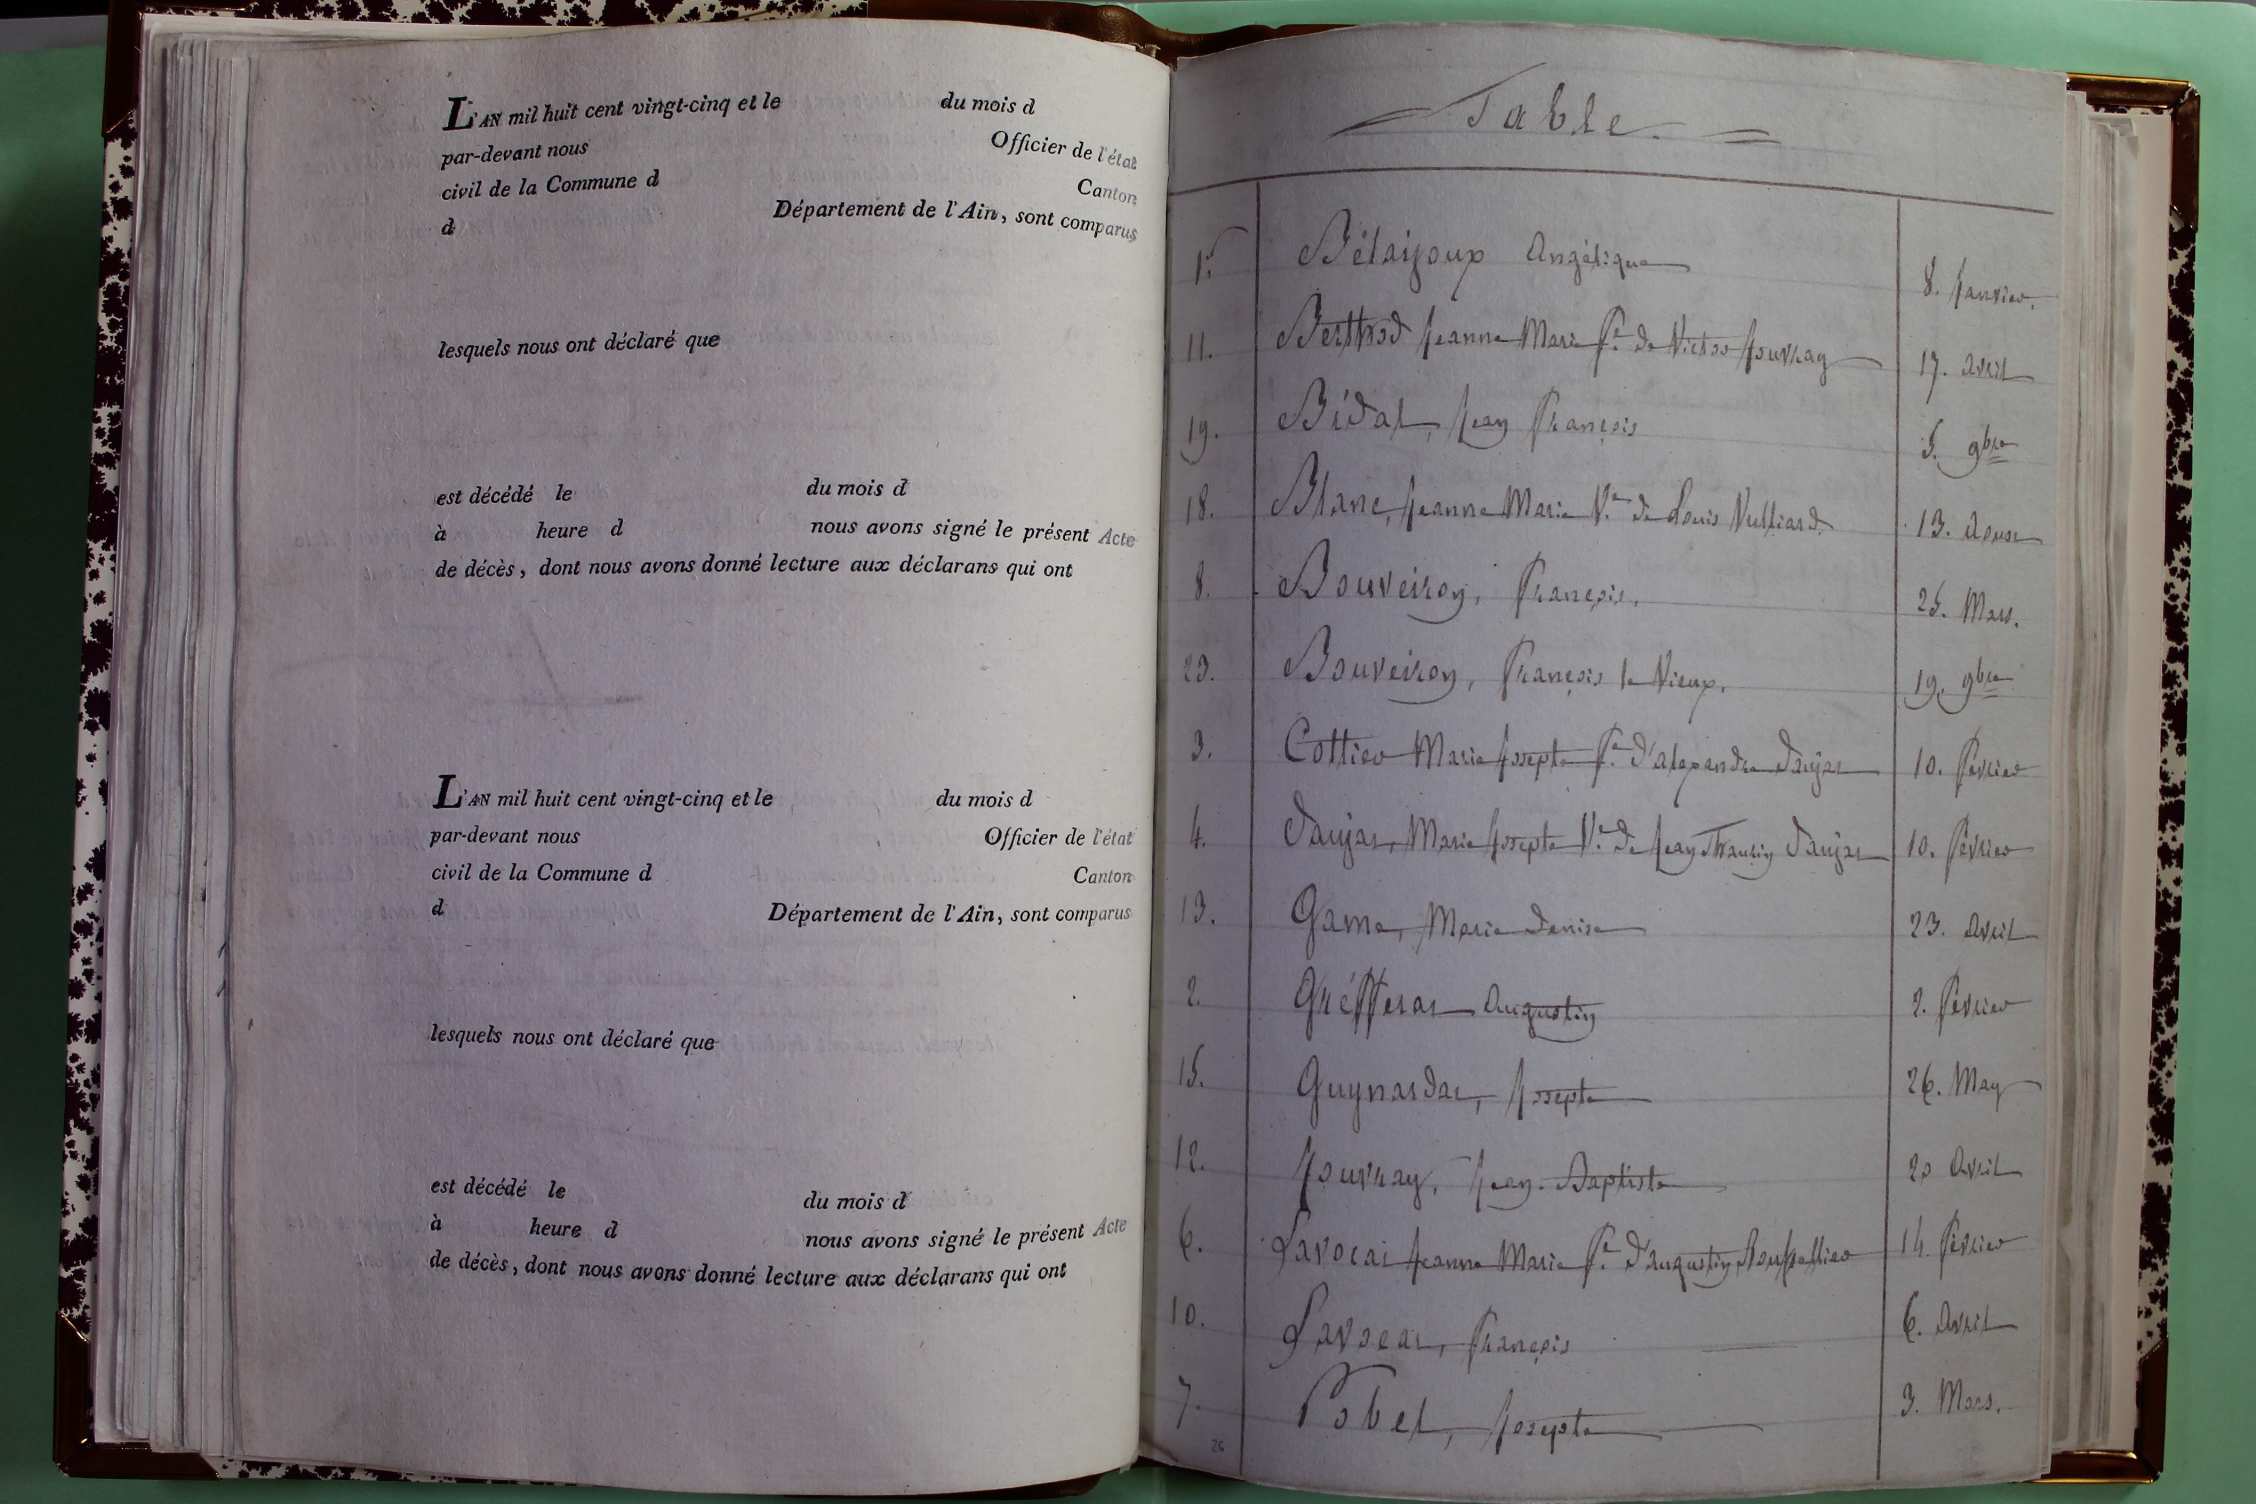 L'AN mil huit cent vingt-cinq et le du mois d
par-devant nous Officier de l'état
civil de la Commune d Canton
d Département de l'Ain, sont comparus
lesquels nous ont déclaré que
est décédé le du mois d
à heure d nous avons signé le présent Acte
de décès, dont nous avons donné lecture aux déclarans qui ont
L'AN mil huit cent vingt-cinq et le du mois d
par-devant nous Officier de l'état
civil de la Commune d Canton
d Département de l'Ain, sont comparus
lesquels nous ont déclaré que
est décédé le du mois d
à heure d nous avons signé le présent Acte
de décès, dont nous avons donné lecture aux déclarans qui ont
Table.
1. Angélique 8. Janvier.
11. Berthod Jeanne Marie fe. de Victor Jouvray 17. avril
19. Bidat, Jean François 5. 9bre
18. Blanc, Jeanne Marie Ve. de Louis Vulliard 13. Aoust
8. Bouveiron, François. 25. Mars.
23. Bouveiron, François le Vieux. 19. 9bre
3. Cottier Marie Josepte fe. d'alexandre Daujat 10. février
4. Daujat, Marie Josepte Ve. de Jean Thaurin Daujat 10. février
13. Game, Marie Denise 23. avril
2. Gréfferat Augustin 2. février
15. Guynardat, Josepte 26. May
12. Jouvray, Jean-Baptiste 20 Avril
6. Lavocat Jeanne Marie fe. d'augustin 14. février
10. Lavocat, François 6. Avril
7. Pobel, Josepte 3. Mars.
26